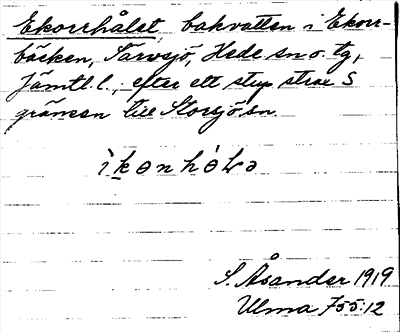 Ekorrhålet, bakvatten i Ekorr-
bäcken, Särvsjö, Hede sn o. tg,
Jämtl. l., efter ett stup strax S
gränsen till Storsjö sn.
S. Åsander 1919
Ulma 755:12